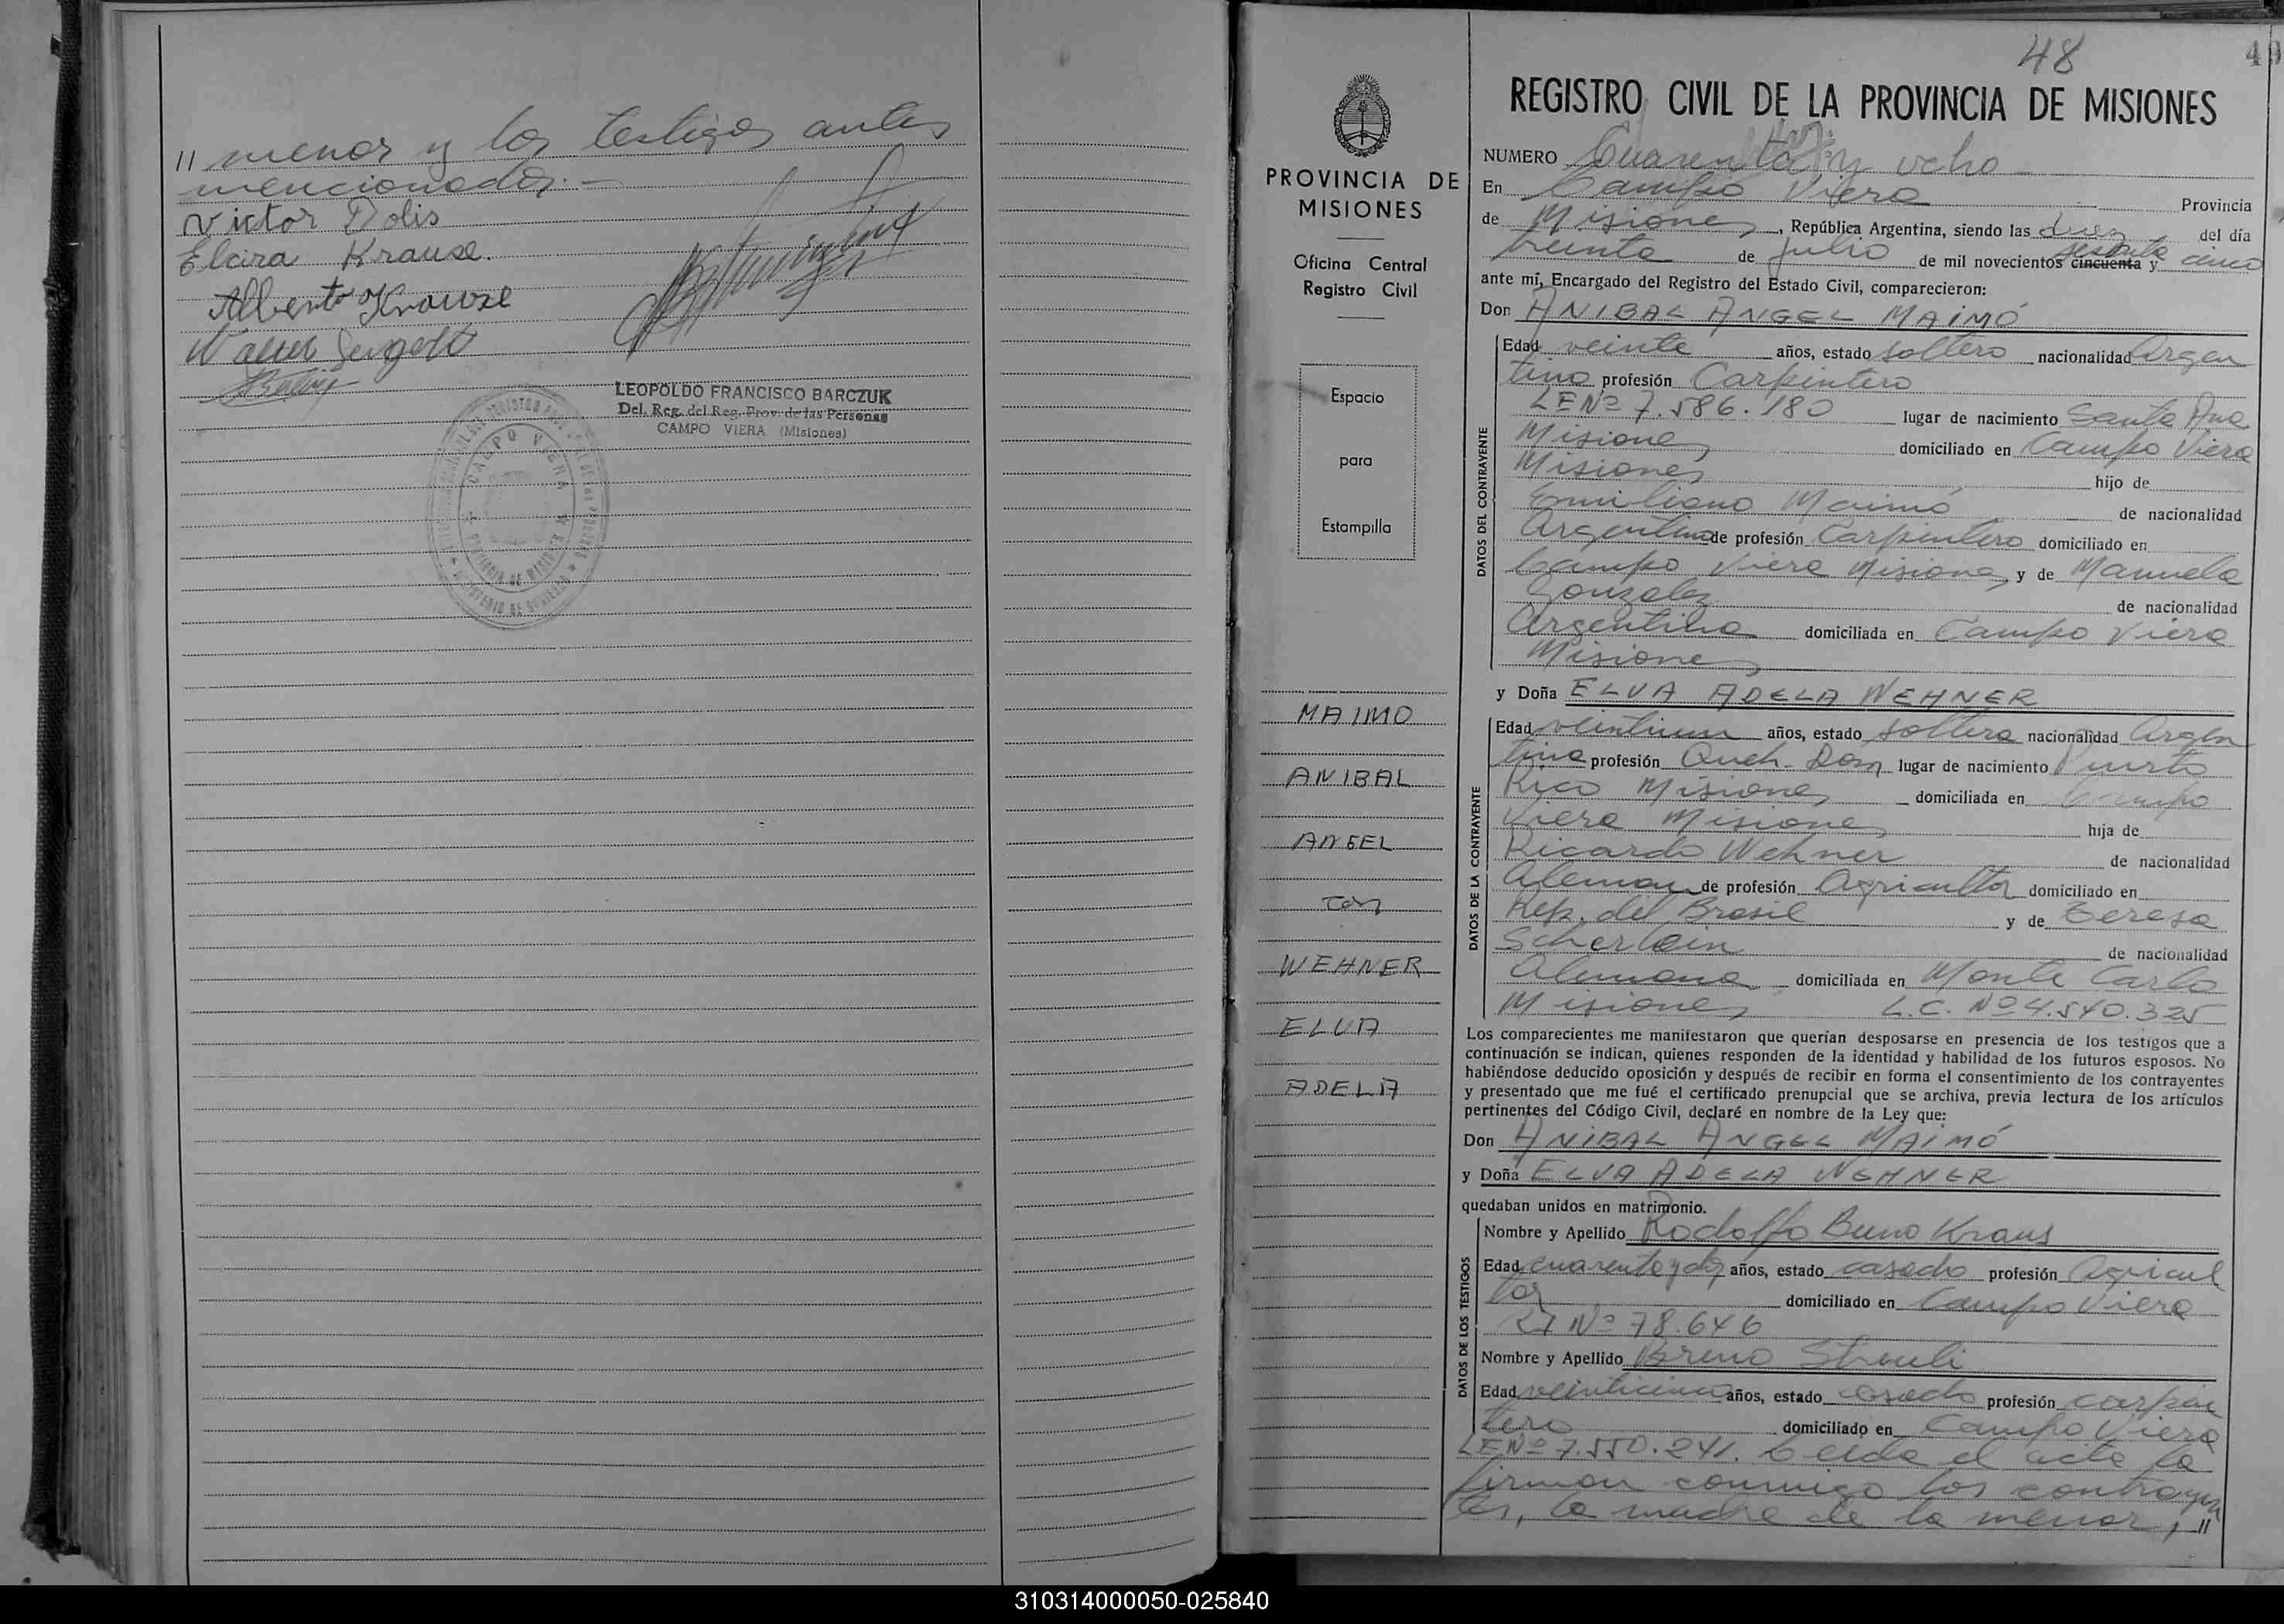 // menor y los testigos antes
mencionados.-
Victor Dolis
Elcira Krause.
Alberto Krause
LEOPOLDO FRANCISCO BARCZUK
Del. Reg. del Reg. Prov. de las Personas
CAMPO VIERA (Misiones)
CAMPO VIERA
PROVINCIA DE MISIONES
MINISTERIO DE GOBIERNO
PROVINCIA DE
MISIONES
Oficina Central
Registro Civil
Espacio
para
Estampilla
MAIMO
ANIBAL
ANGEL
con
WEHNER
ELVA
ADELA
48
49
REGISTRO CIVIL DE LA PROVINCIA DE MISIONES
NUMERO Cuarenta y ocho
En Campo Viera Provincia
de Misiones, República Argentina, siendo las diez del día
treinta de julio de mil novecientos cincuenta y sesenta cinco
ante mí, Encargado del Registro del Estado Civil, comparecieron:
Don ANIBAL ANGEL MAIMÓ
DATOS DEL CONTRAYENTE
Edad veinte años, estado soltero nacionalidad Argen
tino profesión Carpintero
LE Nº 7.586.180 lugar de nacimiento Santa Ana
Misiones domiciliado en Campo Viera
Misiones hijo de
Emiliano Maimó de nacionalidad
Argentina de profesión Carpintero domiciliado en
Campo Viera Misiones y de Manuela
Gonzalez de nacionalidad
Argentina domiciliada en Campo Viera
Misiones
y Doña ELVA ADELA WEHNER
DATOS DE LA CONTRAYENTE
Edad veintiun años, estado soltera nacionalidad Argen
tina profesión Queh. Dom. lugar de nacimiento Puerto
Rico Misiones domiciliada en Campo
Viera Misiones hija de
Ricardo Wehner de nacionalidad
Aleman de profesión Agricultor domiciliado en
Rep. del Brasil y de Teresa
Scherlein de nacionalidad
Alemana domiciliada en Monte Carlo
Misiones L.C. Nº 4.540.325
Los comparecientes me manifestaron que querían desposarse en presencia de los testigos que a
continuación se indican, quienes responden de la identidad y habilidad de los futuros esposos. No
habiéndose deducido oposición y después de recibir en forma el consentimiento de los contrayentes
y presentado que me fué el certificado prenupcial que se archiva, previa lectura de los artículos
pertinentes del Código Civil, declaré en nombre de la Ley que:
Don ANIBAL ANGEL MAIMÓ
y Doña ELVA ADELA WEHNER
quedaban unidos en matrimonio.
DATOS DE LOS TESTIGOS
Nombre y Apellido Rodolfo Buno Kraus
Edad cuarenta y dos años, estado casado profesión Agricul
tor domiciliado en Campo Viera
Nº 78.646
Nombre y Apellido Breno
Edad veinticinco años, estado casado profesión carpin
tero domiciliado en Campo Viera
LE Nº 7.550.241. Leida el acta la
firman conmigo los contrayen
tes, la madre de la menor, //
310314000050-025840